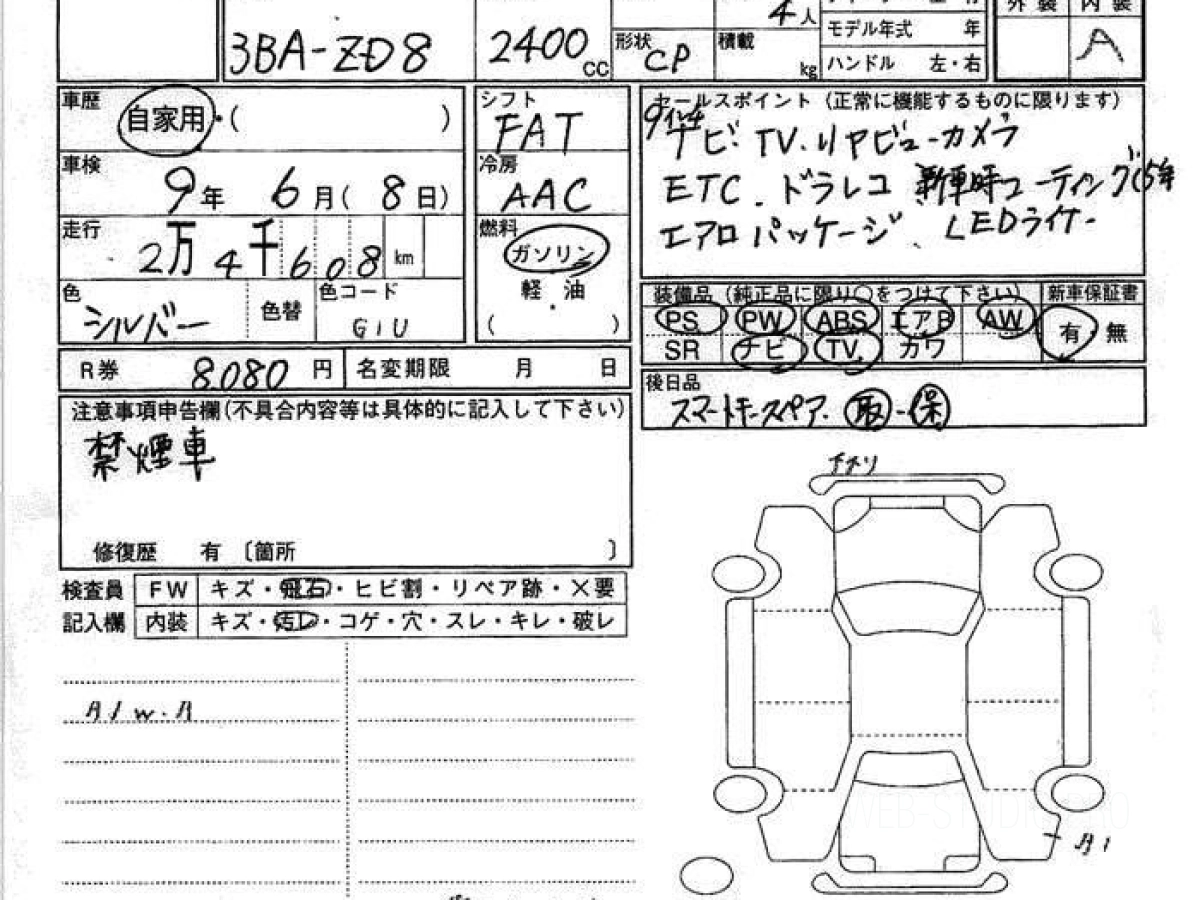 4人
外装 内装
モデル年式 年
3BA-ZD8
2400cc
形状 CP
積載 kg
ハンドル 左・右
A
車歴 自家用・( )
シフト FAT
セールスポイント(正常に機能するものに限ります)
9インチ
ナビ・TV.リヤビューカメラ
ETC.ドラレコ 新車時コーティング(5年
エアロパッケージ、LEDライナー
車検 9年 6月(8日)
冷房 AAC
走行 2万4千608km
燃料 ガソリン
軽・油
( )
色 シルバー
色替
色コード G1U
装備品(純正品に限り○をつけて下さい) 新車保証書
PS PW ABS エアB AW 有・無
SR ナビ TV. カワ
R券 8080円
名変期限 月 日
後日品
スマートキースペア. 取-保
注意事項申告欄(不具合内容等は具体的に記入して下さい)
禁煙車
修復歴 有〔箇所 〕
検査員 FW キズ・飛石・ヒビ割・リペア跡・×要
記入欄 内装 キズ・汚レ・コゲ・穴・スレ・キレ・破レ
A1 W.A
A1